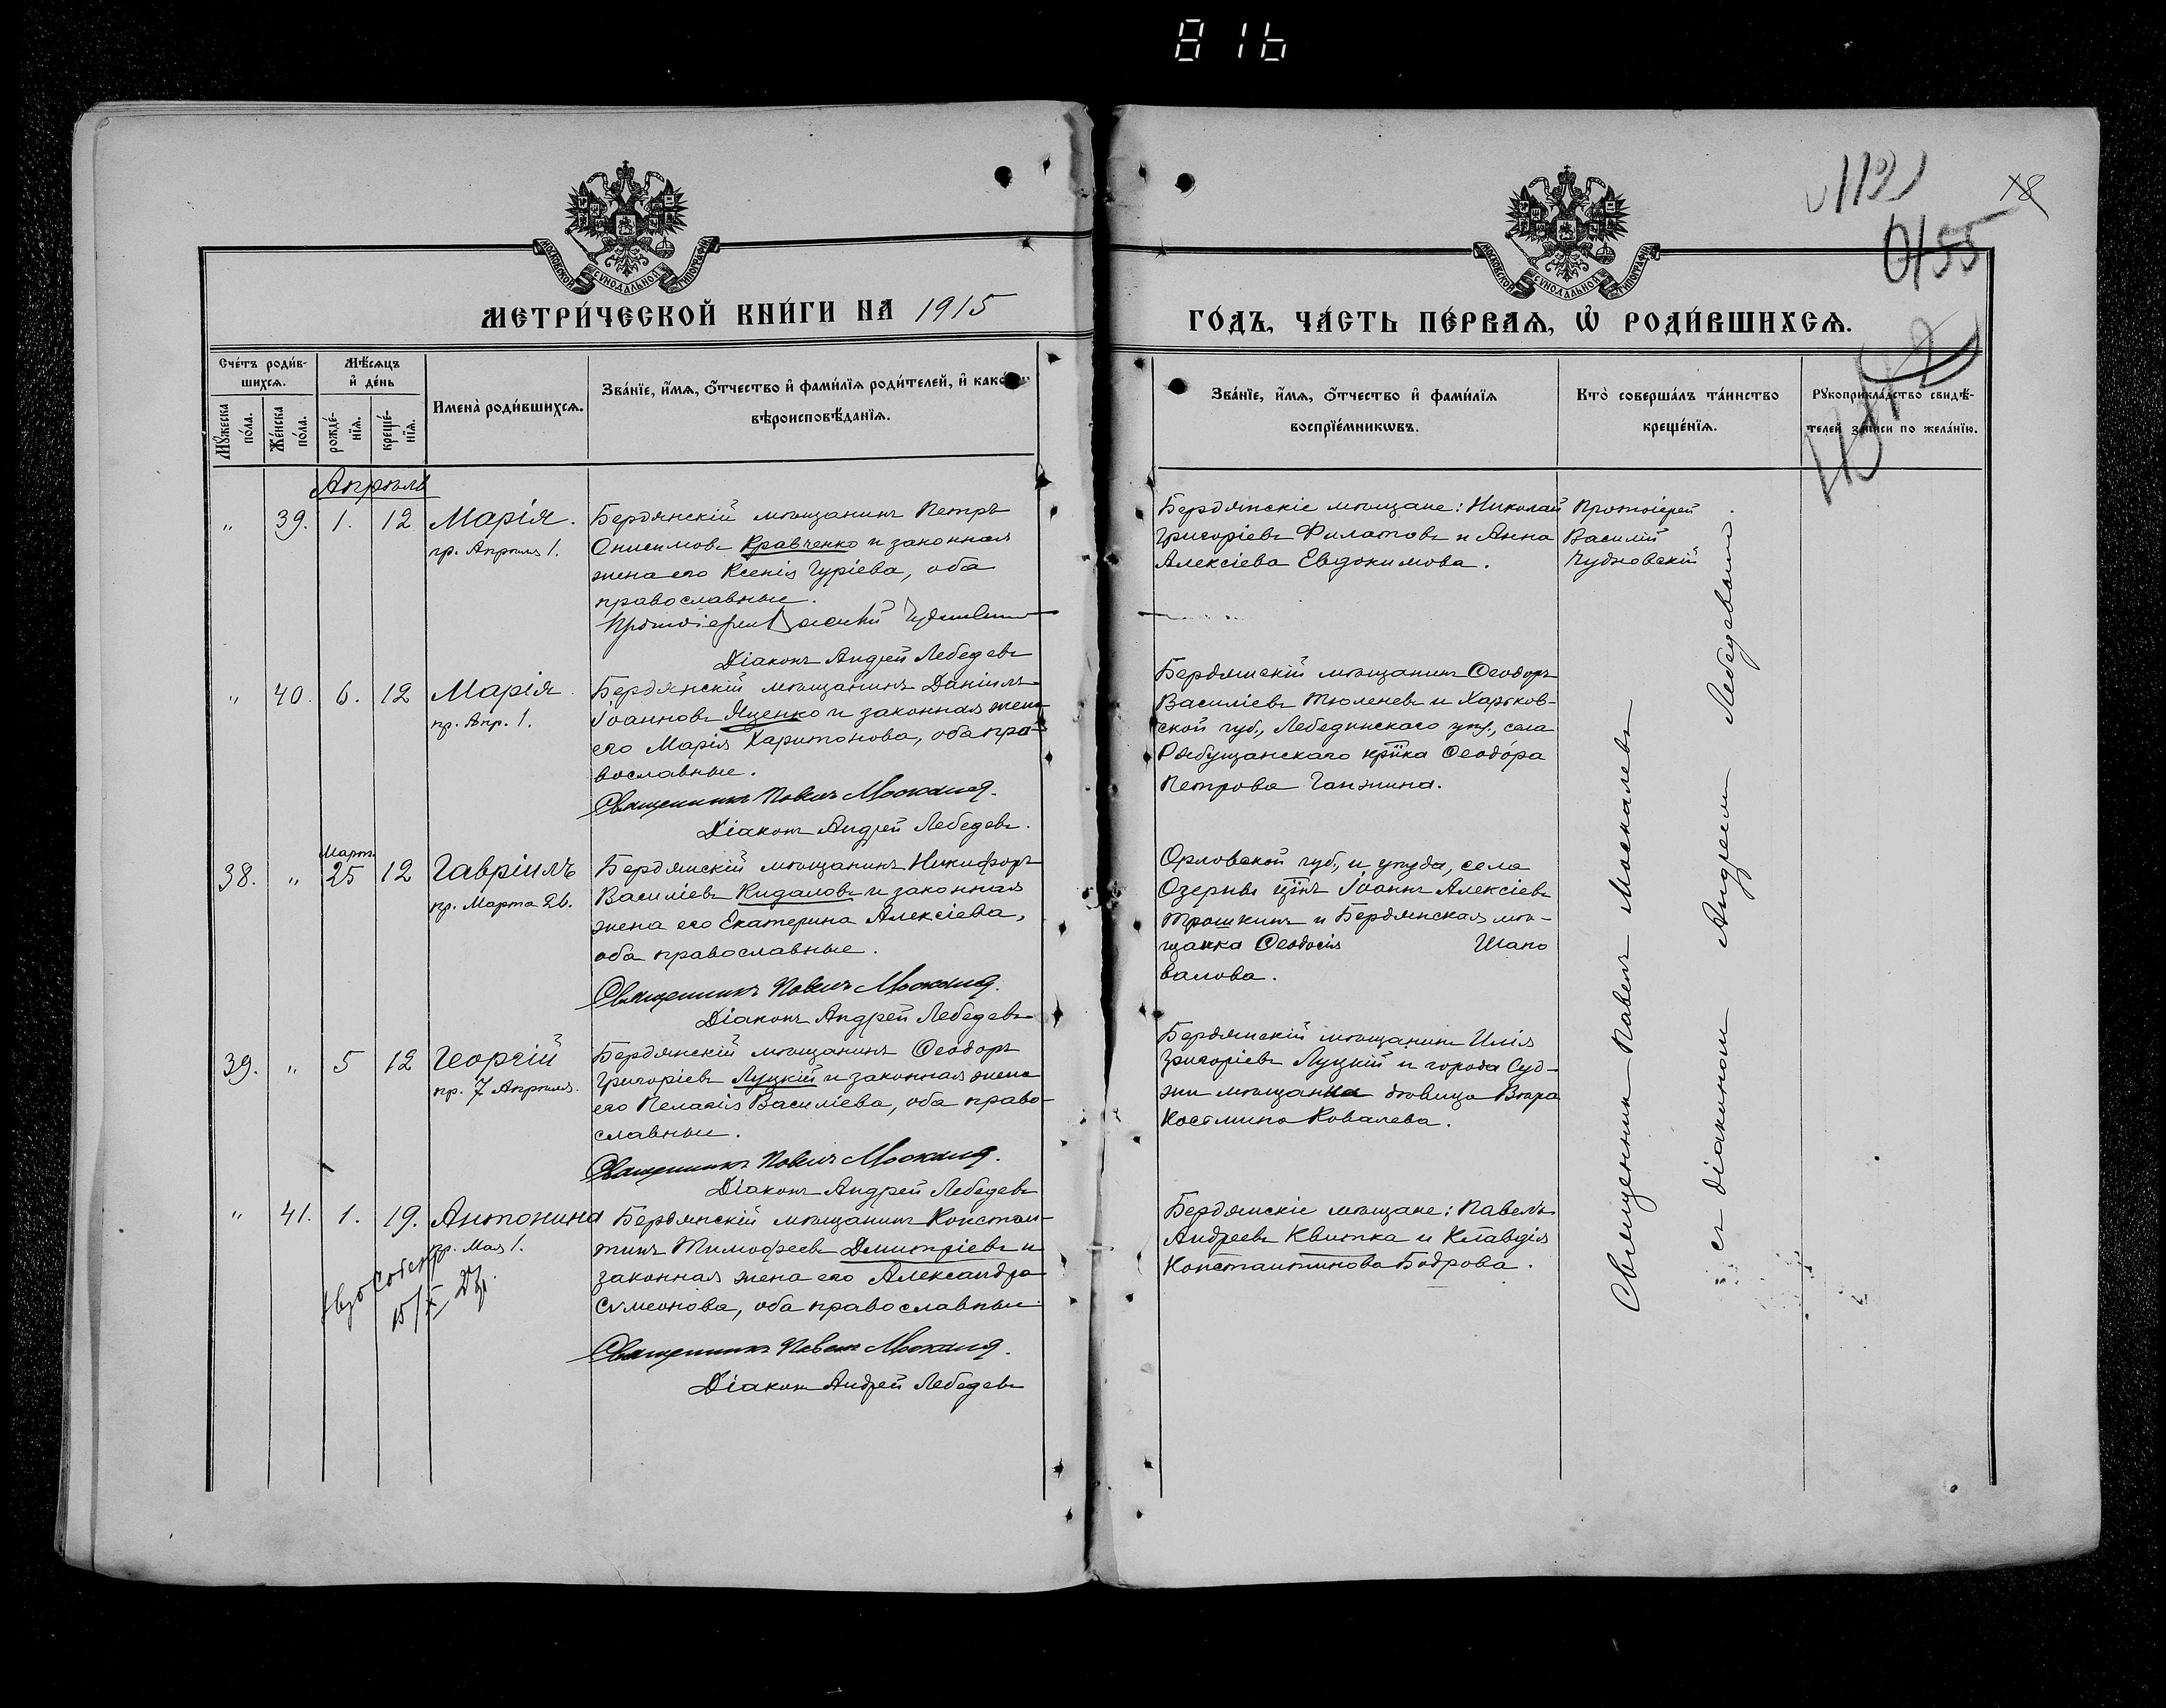 816
1191
18
0/55
МОСКОВСКОЙ СѴНОДАЛЬНОЙ ТИПОГРАФІИ
МОСКОВСКОЙ СѴНОДАЛЬНОЙ ТИПОГРАФІИ
МЕТРИ́ЧЕСКОЙ КНИ́ГИ НА 1915
ГО́ДЪ, ЧА́СТЬ ПЕ́РВАѦ, Ѡ҆ РОДИ́ВШИХСѦ.
Сче́тъ роди́в-
шихсѧ.
Мꙋ́жеска по́ла.
Же́нска по́ла.
Мѣ́сѧцъ
и҆ де́нь
рожде́-
нїѧ.
креще́-
нїѧ.
Имена̀ роди́вшихсѧ.
Зва́нїе, и҆́мѧ, ѻ҆́тчество и҆ фами́лїѧ роди́телей, и҆ како́й
вѣроисповѣ́данїѧ.
Зва́нїе, и҆́мѧ, ѻ҆́тчество и҆ фами́лїѧ
воспрїе́мникѡвъ.
Кто̀ соверша́лъ та́инство
креще́нїѧ.
Рꙋкоприкла́дство свидѣ́-
телей записи по жела́нїю.
Апрѣль
" 39. 1. 12 Марія.
пр. Апрѣля 1.
Бердянскій мѣщанинъ Петръ
Онисимовъ Кравченко и законная
жена его Ксенія Гуріева, оба
православные.
Протоіерей Василій Чудновскій
Діаконъ Андрей Лебедевъ
Бердянскіе мѣщане: Николай
Григоріевъ Филатовъ и Анна
Алексіева Евдокимова.
Протоіерей
Василій
Чудновскій
" 40. 6. 12 Марія.
пр. Апр. 1.
Бердянскій мѣщанинъ Даніилъ
Іоанновъ Яценко и законная жена
его Марія Харитонова, оба пра-
вославные.
Священникъ Павелъ Москалевъ.
Діаконъ Андрей Лебедевъ.
Бердянскій мѣщанинъ Ѳеодоръ
Василіевъ Тюленевъ и Харьков-
ской губ., Лебединскаго уѣз., села
крⷭ҇нка Ѳеодора
Петрова Ганжина.
38. " Март. 25 12 Гавріилъ
пр. Марта 26.
Бердянскій мѣщанинъ Никифоръ
Василіевъ Кидаловъ и законная
жена его Екатерина Алексіева,
оба православные.
Священникъ Павелъ Москалевъ.
Діаконъ Андрей Лебедевъ
Орловской губ., и уѣзда, села
Іоаннъ Алексіевъ
Трошкинъ и Бердянская мѣ-
щанка Ѳеодосія Шапо
валова.
39. " 5 12 Георгій
пр. 7 Апрѣля.
Бердянскій мѣщанинъ Ѳеодоръ
Григоріевъ Луцкій и законная жена
его Пелагія Василіева, оба право-
славные.
Священникъ Павелъ Москалевъ.
Діаконъ Андрей Лебедевъ
Бердянскій мѣщанинъ Илія
Григоріевъ Луцкій и города Суд-
жи мѣщанка вдовица Вѣра
Космина Ковалева.
" 41. 1. 19. Антонина
пр. Мая 1.
Бердянскій мѣщанинъ Констан-
тинъ Тимофеевъ Димитріевъ и
законная жена его Александра
Сѵмеонова, оба православные
Священникъ Павелъ Москалевъ.
Діаконъ Андрей Лебедевъ
Бердянскіе мѣщане: Павелъ
Андреевъ Квитка и Клавдія
Константинова Бодрова.
Священникъ Павелъ Москалевъ
съ діакономъ Андреемъ Лебедевымъ